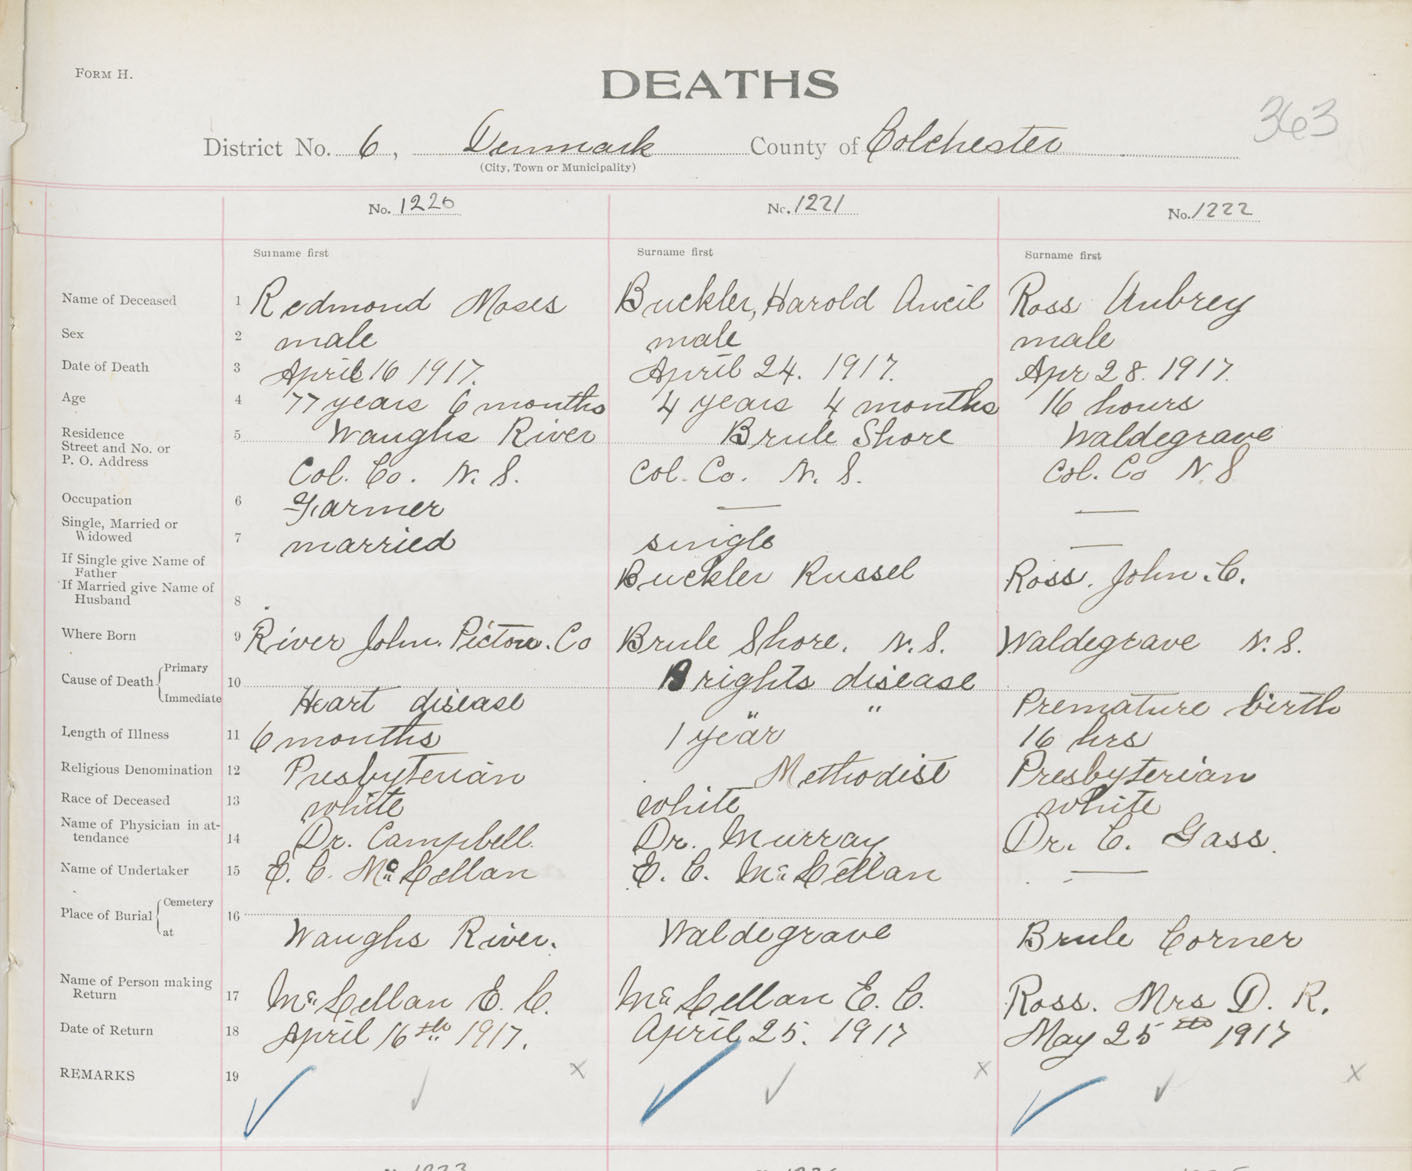 FORM H.
DEATHS
363
District No. 6, Denmark County of Colchester
(City, Town or Municipality)
No. 1220 No. 1221 No. 1222
Surname first Surname first Surname first
Name of Deceased 1 Redmond Moses Buckler, Harold Ancil Ross Aubrey
Sex 2 male male male
Date of Death 3 April 16 1917. April 24. 1917. Apr 28. 1917.
Age 4 77 years 6 months 4 years 4 months 16 hours
Residence Street and No. or P. O. Address 5 Waughs River Brule Shore Waldegrave
Col. Co. N. S. Col. Co. N. S. Col. Co N. S
Occupation 6 Farmer — —
Single, Married or Widowed 7 married single —
If Single give Name of Father Buckler Russel Ross. John. C.
If Married give Name of Husband 8
Where Born 9 River John. Pictou. Co Brule Shore. N. S. Waldegrave N. S.
Cause of Death Primary 10 Brights disease
Immediate Heart disease " " Premature birth
Length of Illness 11 6 months 1 year 16 hrs
Religious Denomination 12 Presbyterian Methodist Presbyterian
Race of Deceased 13 white white white
Name of Physician in attendance 14 Dr. Campbell. Dr. Murray Dr. C. Gass.
Name of Undertaker 15 E. C. McLellan E. C. McLellan —
Place of Burial Cemetery at 16 Waughs River. Waldegrave Brule Corner
Name of Person making Return 17 McLellan E. C. McLellan E. C. Ross. Mrs D. R.
Date of Return 18 April 16th 1917. April 25. 1917 May 25th 1917
REMARKS 19 x x x